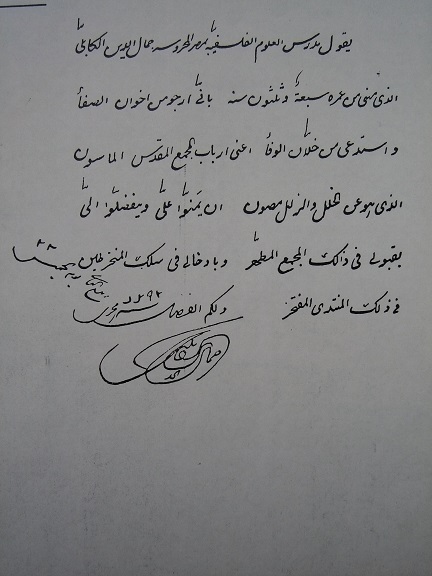 يقول مدرس العلوم الفلسفية بمصر المحروسه جمال الدين الكابلي
الذى مضى من عمره سبعة وثلثون سنه بانى ارجو من اخوان الصفا
واستدعى من خلان الوفا اعنى ارباب المجمع المقدس الماسون
الذى هو عن الخلل والزلل مصون ان يمنوا على ويتفضلوا الى
بقبولى فى ذالك المجمع المطهر وبادخالى فى سلك المنخرطين
فى ذلك المنتدى المفتخر ولكم الفضل